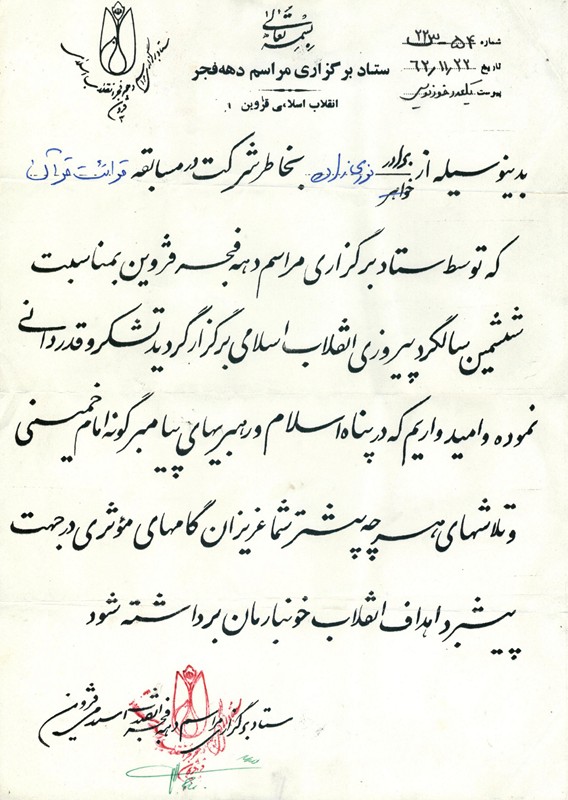 بسمه تعالی
ستاد برگزاری مراسم دهه فجر
انقلاب اسلامی قزوین
شماره ۵۴-۲۲۳
تاریخ ۶۲/۱۱/۲۲
پیوست
بدینوسیله از برادر خواهر بخاطر شرکت در مسابقه قرائت قرآن
که توسط ستاد برگزاری مراسم دهه فجر قزوین بمناسبت
ششمین سالگرد پیروزی انقلاب اسلامی برگزار گردید تشکر و قدردانی
نموده و امیدواریم که در پناه اسلام و رهبریهای پیامبرگونه امام خمینی
و تلاشهای هرچه بیشتر شما عزیزان گامهای مؤثری در جهت
پیشبرد اهداف انقلاب خونبارمان برداشته شود
ستاد برگزاری مراسم دهه فجر انقلاب اسلامی قزوین